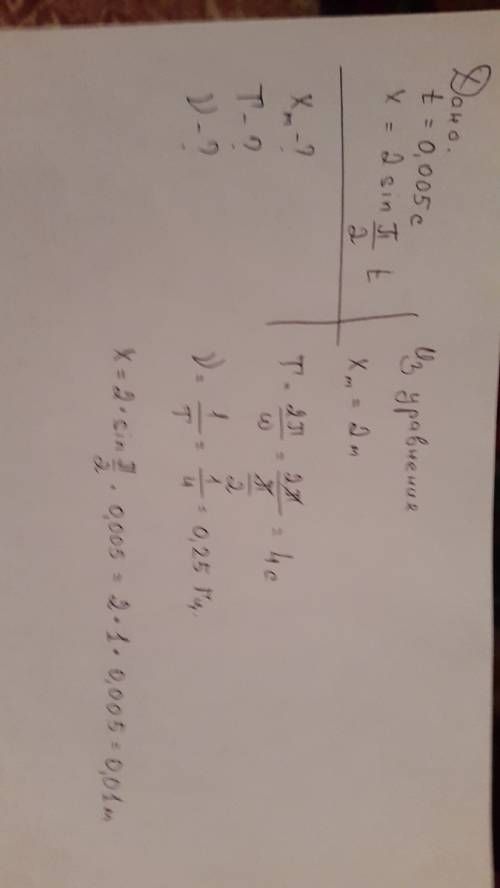 Дано:
t = 0,005с
x = 2 sin π/2 t
Xm - ?
T - ?
ν - ?
Из уравнения
Xm = 2м
T = 2π/ω = 2π/(π/2) = 4с
ν = 1/T = 1/4 = 0,25 Гц.
x = 2 · sin π/2 · 0,005 = 2 · 1 · 0,005 = 0,01м